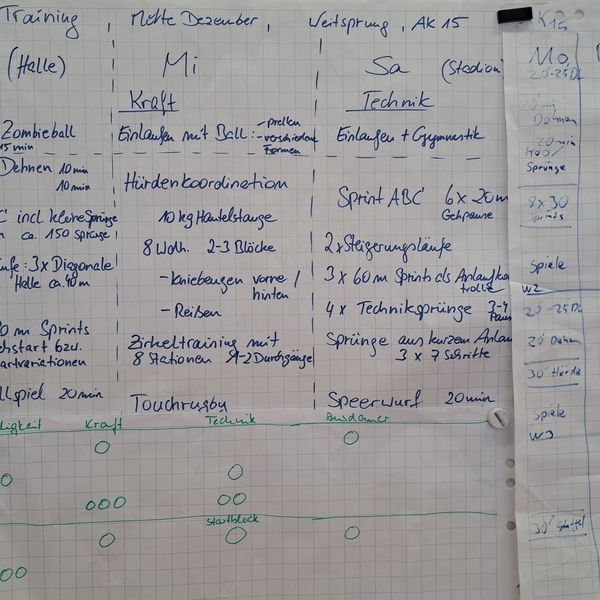 Training, Mitte Dezember, Weitsprung, AK 15
(Halle)
Zombieball
15 min
Dehnen 10 min
10 min
incl. kleine Sprünge
ca. 150 Sprünge
3x Diagonale
Halle ca. 40 m
0 m Sprints
chstart bzw.
artvariationen
llspiel 20 min
Mi
Kraft
Einlaufen mit Ball: - prellen
- verschiedene
Formen
Hürdenkoordination
10 kg Hantelstange
8 Wdh. 2-3 Blöcke
- Kniebeugen vorne /
hinten
- Reißen
Zirkeltraining mit
8 Stationen 1-2 Durchgänge
Touchrugby
Sa (Stadion)
Technik
Einlaufen + Gymnastik
Sprint ABC 6 x 20 m
Gehpause
2 x Steigerungsläufe
3 x 60 m Sprints als Anlaufko
trolle
4 x Techniksprünge 3-4
Paus
Sprünge aus kurzem Anlau
3 x 7 Schritte
Speerwurf 20 min
digkeit Kraft Technik Ausdauer
Startblock
K 15
Mo,
20-25 DL
Dehnen
20 min
Sprünge
8 x 30
Sprints
Spiele
W2
20-25 DL
20 Dehnen
30' Hürde
Spiele
W3